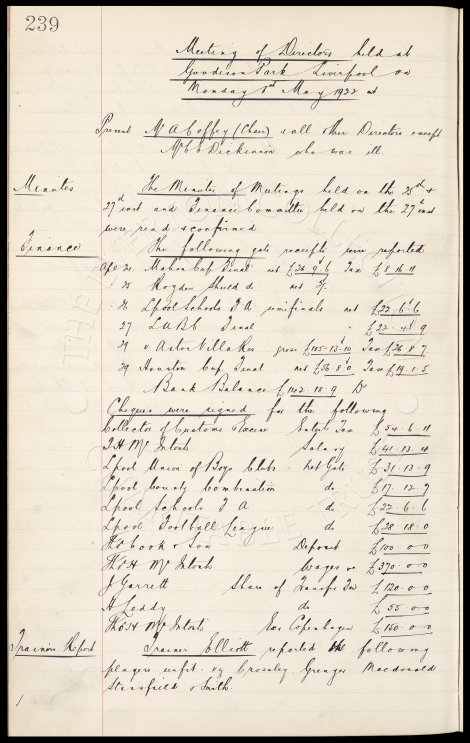 239
Meeting of Directors held at
Goodison Park Liverpool on
Monday 1st May 1922 at
Present Mr A Coffey (Chair) & all other Directors except
Mr C E Dickinson who was ill.
Minutes The Minutes of Meetings held on the 25th &
27th inst and Finance Committee held on the 27th inst
were read & confirmed
Finance The following gate receipts were reported
Mahon Cup Final net £26.9.6 Tax £8.16.11
Royden Shield do net
26 Lpool Schools F A Semifinals net £22.6.6
27 L A B C Final £22.4.9
29 v Aston Villa Res gross £105-13-10 Tax £26.8.7
29 Houston Cup Final net £56.8.0 Tax £19.1.5
Bank Balance £142.18.9 Dr
Cheques were signed for the following
Collector of Customs & Excise Entert Tax £54.6.11
T H McIntosh Salary £41.13.4
Lpool Union of Boys Clubs Net Gate £31.13.9
Lpool County Combination do £17.12.7
Lpool Schools F A do £22.6.6
Lpool Football League do £28.18.0
Thos Cook & Son Deposit £100.0.0
Thos H McIntosh Wages &c £370.0.0
J Garrett Share of Transfer Fee £120.0.0
A Leddy do £55.0.0
Thos H McIntosh Exs Copenhagen £150.0.0
Trainers Report Trainer Elliott reported the following
players unfit. viz Crossley Grenyer Macdonald
Stansfield & Smith.